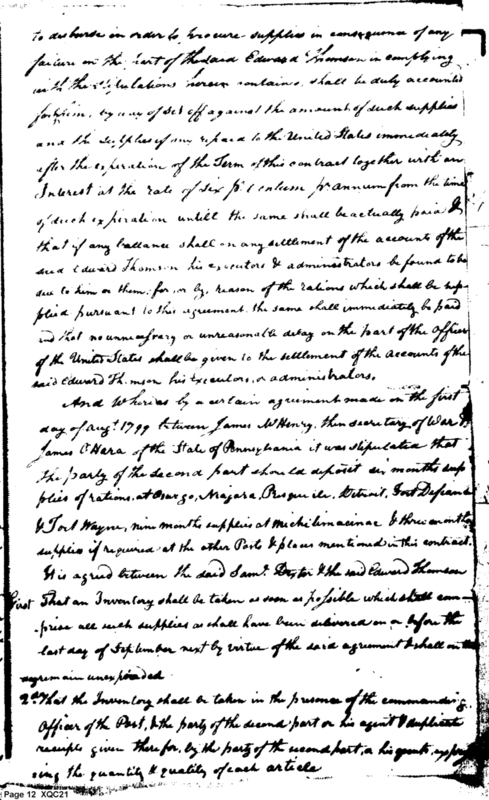 to disburse in order to procure supplies in consequence of any
failure on the part of the said Edward Thomson in complying
with the stipulations herein contained, shall be duly accounted
for by him, by way of set off against the amount of such supplies
and the surplus if any repaid to the United States immediately
after the expiration of the Term of this contract together with an
Interest at the rate of Six pr. Centum pr. annum from the time
of such expiration untill the same shall be actually paid &
that if any ballance shall on any settlement of the accounts of the
said Edward Thomson his executors & administrators be found to be
due to him or them, for, or by reason of the rations which shall be sup-
plied pursuant to this agreement, the same shall immediately be paid
and that no unnecessary or unreasonable delay on the part of the Officers
of the United States shall be given to the settlement of the accounts of the
said Edward Thomson his Executors, or administrators.
And whereas by a certain agreement made on the first
day of Augt. 1799 between James McHenry, then secretary of War &
James O'Hara of the State of Pennsylvania it was stipulated that
the party of the second part should deposit six months sup-
plies of rations, at Oswego, Niagara, Presque ile, Detroit, Fort Defiance
& Fort Wayne, nine months supplies at Michilimacinac & three months
supplies if required at the other Posts & places mentioned in this contract.
It is agreed between the said Saml. Dexter & the said Edward Thomson
First That an Inventory shall be taken as soon as possible which shall com-
prise all such supplies as shall have been delivered on or before the
last day of September next by virtue of the said agreement & shall on that
day remain unexpended
2d. That the Inventory shall be taken in the presence of the commanding
Officer of the Post, & the party of the second part or his agent & duplicate
receipts given therefor, by the party of the second part, or his agents, expres
sing the quantity & quality of each article
Page 12 XQC21